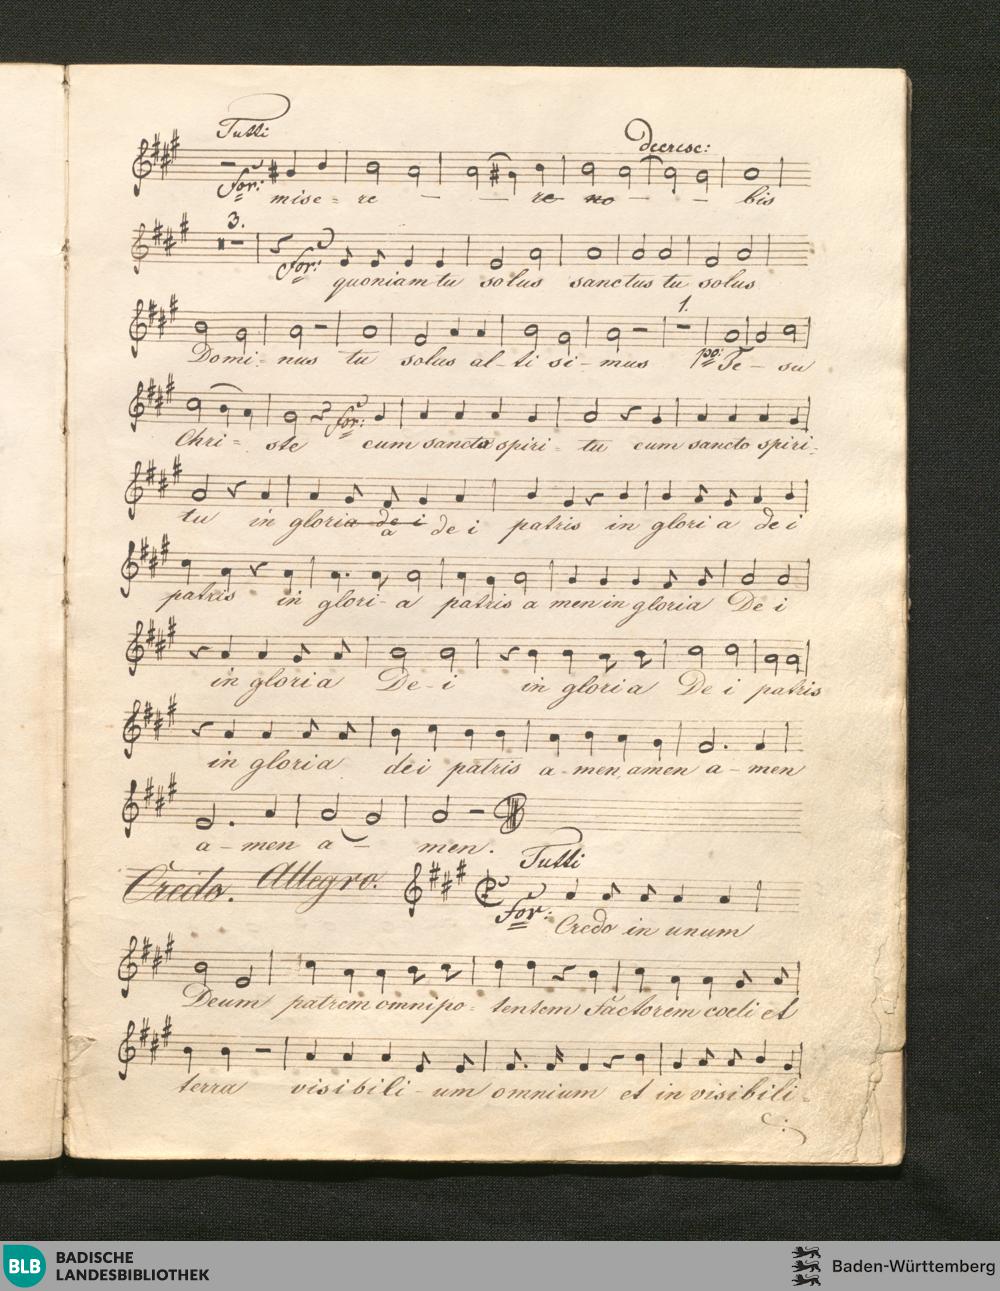 Tutti
decresc:
for: mise = re - - re no - - bis
3.
for: quoniam tu solus sanctus tu solus
1.
Domi - nus tu solus al - ti si - mus po: Je - su
Chri = ste for: cum sancto spiri - tu cum sancto spiri -
tu in gloria de i a de i patris in glori a de i
patris in glori - a patris a men in gloria De i
in gloria De - i in gloria De i patris
in gloria dei patris a - men amen a - men
a - men a - men.
Credo. Allegro. Tutti
for: Credo in unum
Deum patrem omnipo = tentem factorem coeli et
terra visibili - um omnium et in visibili -
BLB BADISCHE
LANDESBIBLIOTHEK
Baden-Württemberg